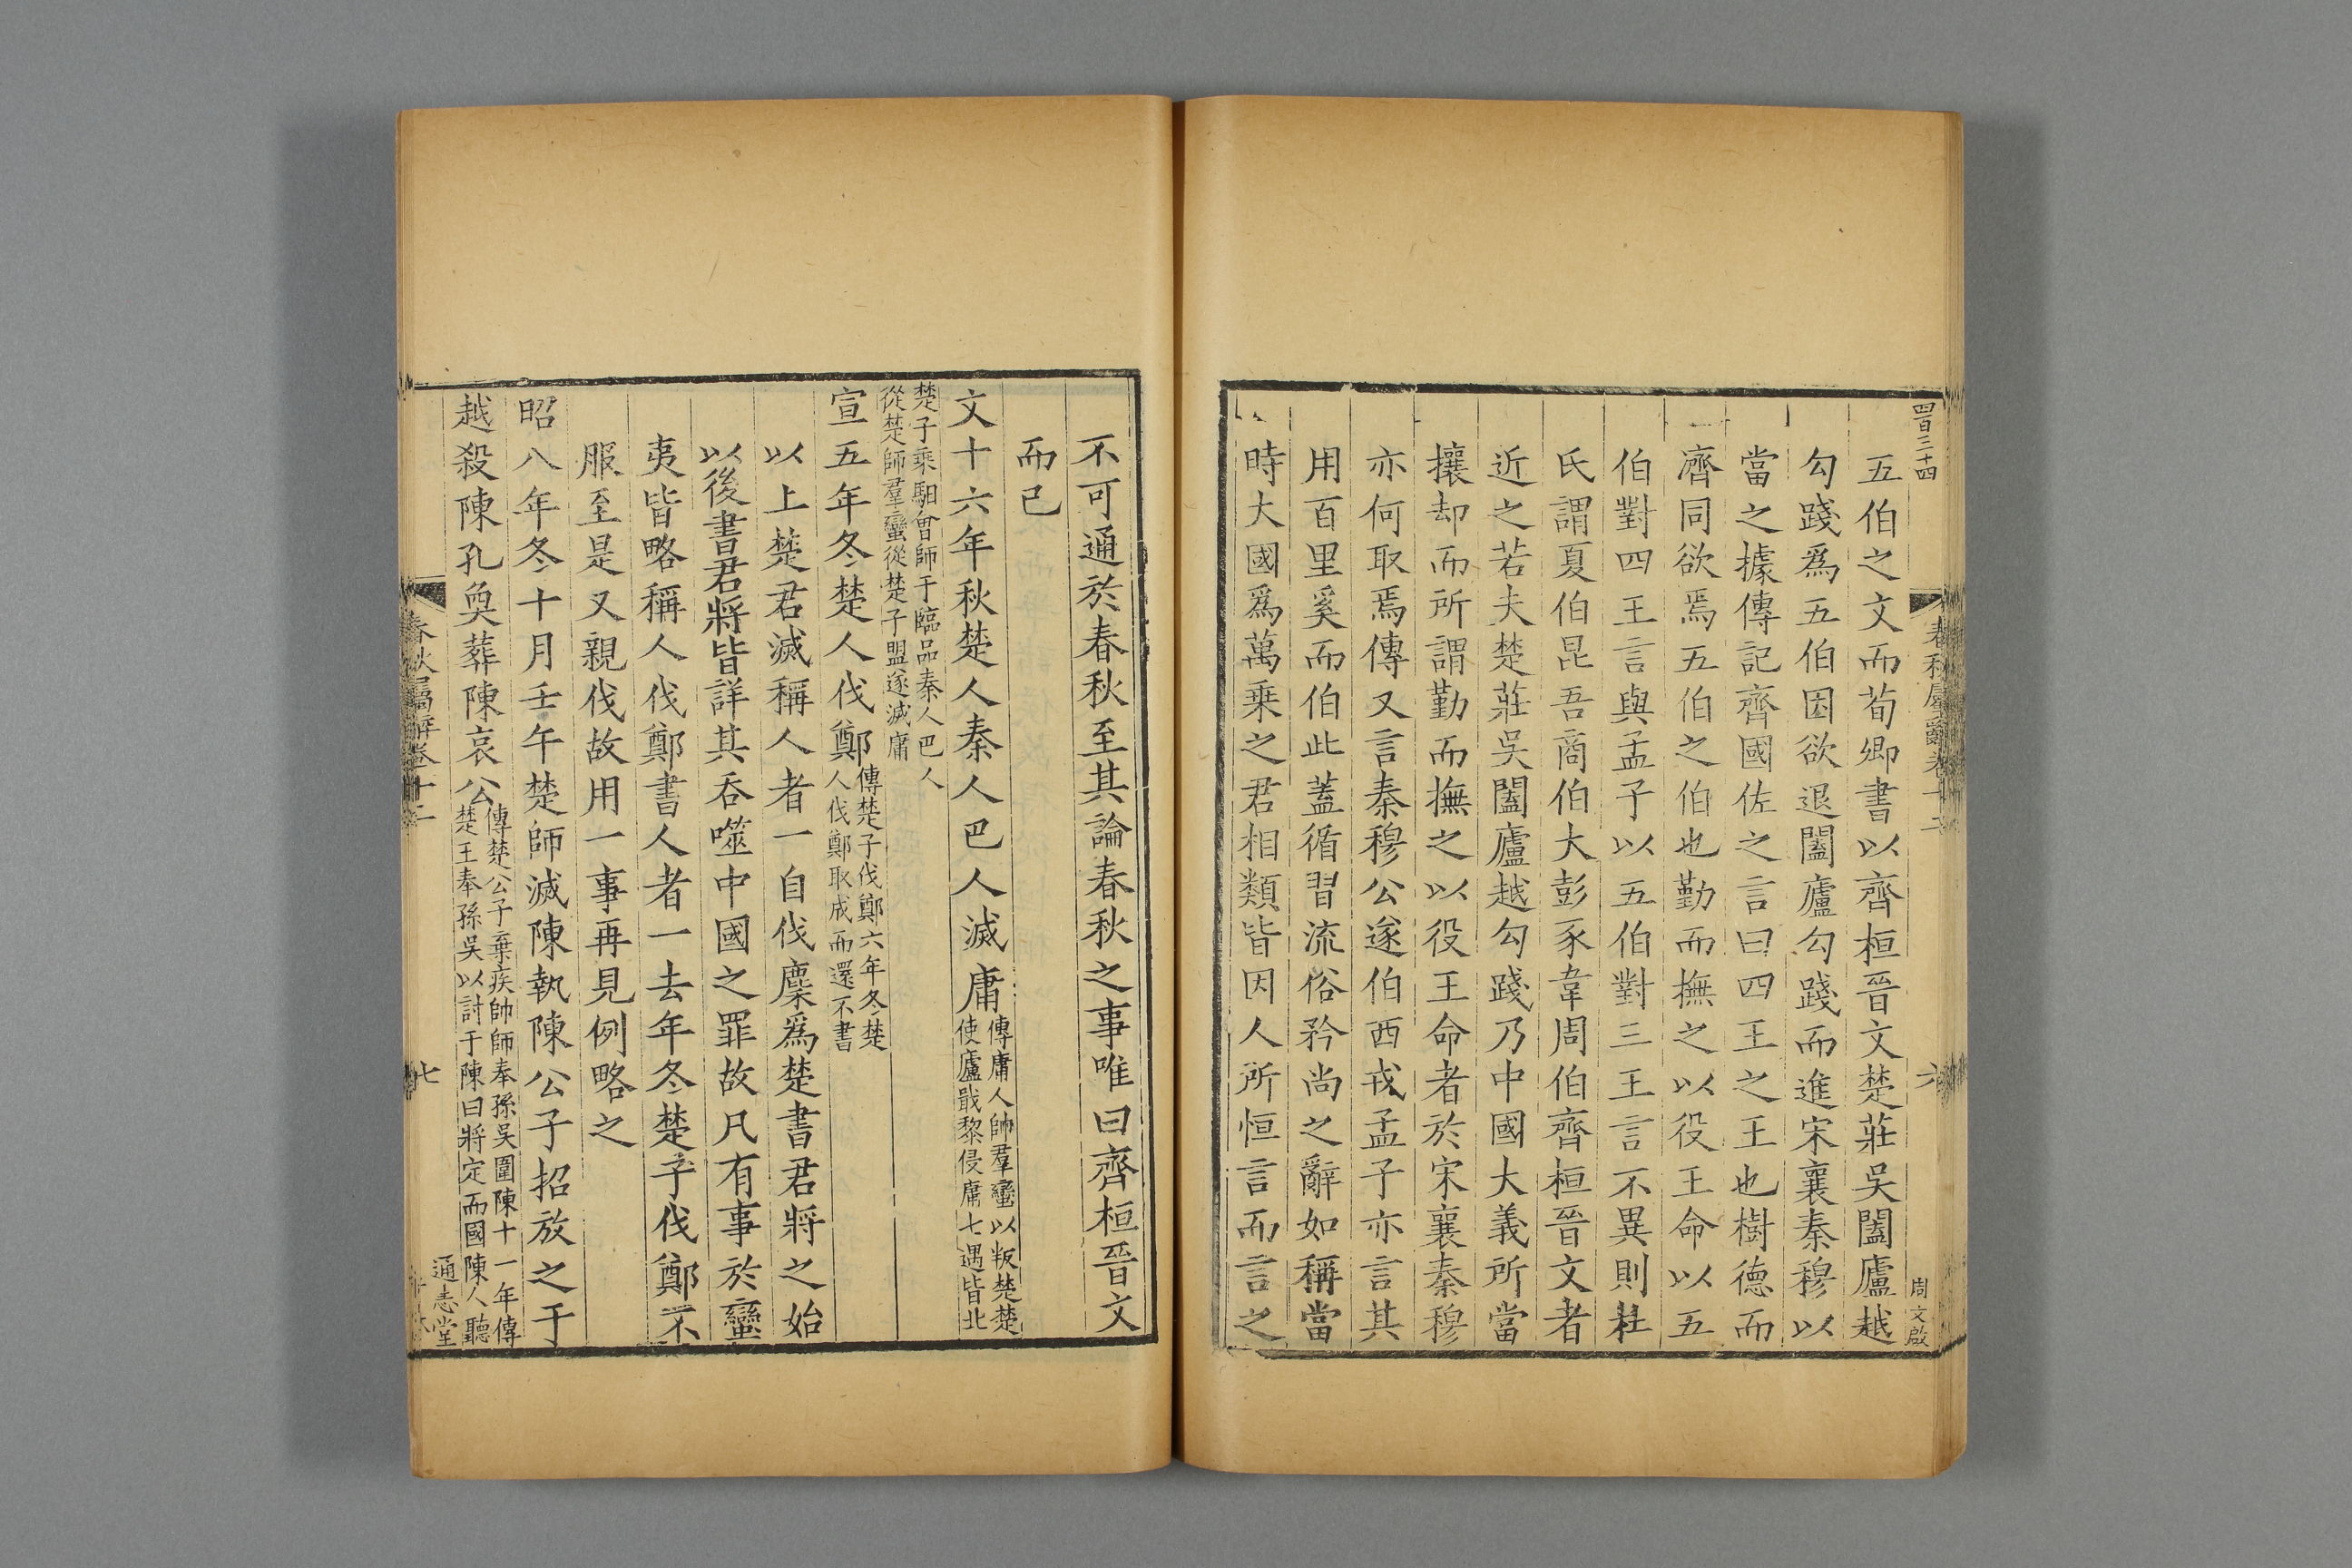 四百三十四
春秋屬辭卷十二
六
周文啟
五伯之文而荀卿書以齊桓晉文楚莊吳闔廬越
勾踐爲五伯因欲退闔廬勾踐而進宋襄秦穆以
當之據傳記齊國佐之言曰四王之王也樹德而
濟同欲焉五伯之伯也勤而撫之以役王命以五
伯對四王言與孟子以五伯對三王言不異則杜
氏謂夏伯昆吾商伯大彭豕韋周伯齊桓晉文者
近之若夫楚莊吳闔廬越勾踐乃中國大義所當
攘却而所謂勤而撫之以役王命者於宋襄秦穆
亦何取焉傳又言秦穆公遂伯西戎孟子亦言其
用百里奚而伯此蓋循習流俗矜尚之辭如稱當
時大國爲萬乘之君相類皆因人所恒言而言之
不可通於春秋至其論春秋之事唯曰齊桓晉文
而已
文十六年秋楚人秦人巴人滅庸傳庸人帥羣蠻以叛楚楚
使廬戢黎侵庸七遇皆北
楚子乘馹會師于臨品秦人巴人
從楚師羣蠻從楚子盟遂滅庸
宣五年冬楚人伐鄭傳楚子伐鄭六年冬楚
人伐鄭取成而還不書
以上楚君滅稱人者一自伐麇爲楚書君將之始
以後書君將皆詳其吞噬中國之罪故凡有事於蠻
夷皆略稱人伐鄭書人者一去年冬楚子伐鄭不
服至是又親伐故用一事再見例略之
昭八年冬十月壬午楚師滅陳執陳公子招放之于
越殺陳孔奐葬陳哀公傳楚公子棄疾帥師奉孫吳圍陳十一年傳
楚王奉孫吳以討于陳曰將定而國陳人聽
春秋屬辭卷十二
七
通志堂